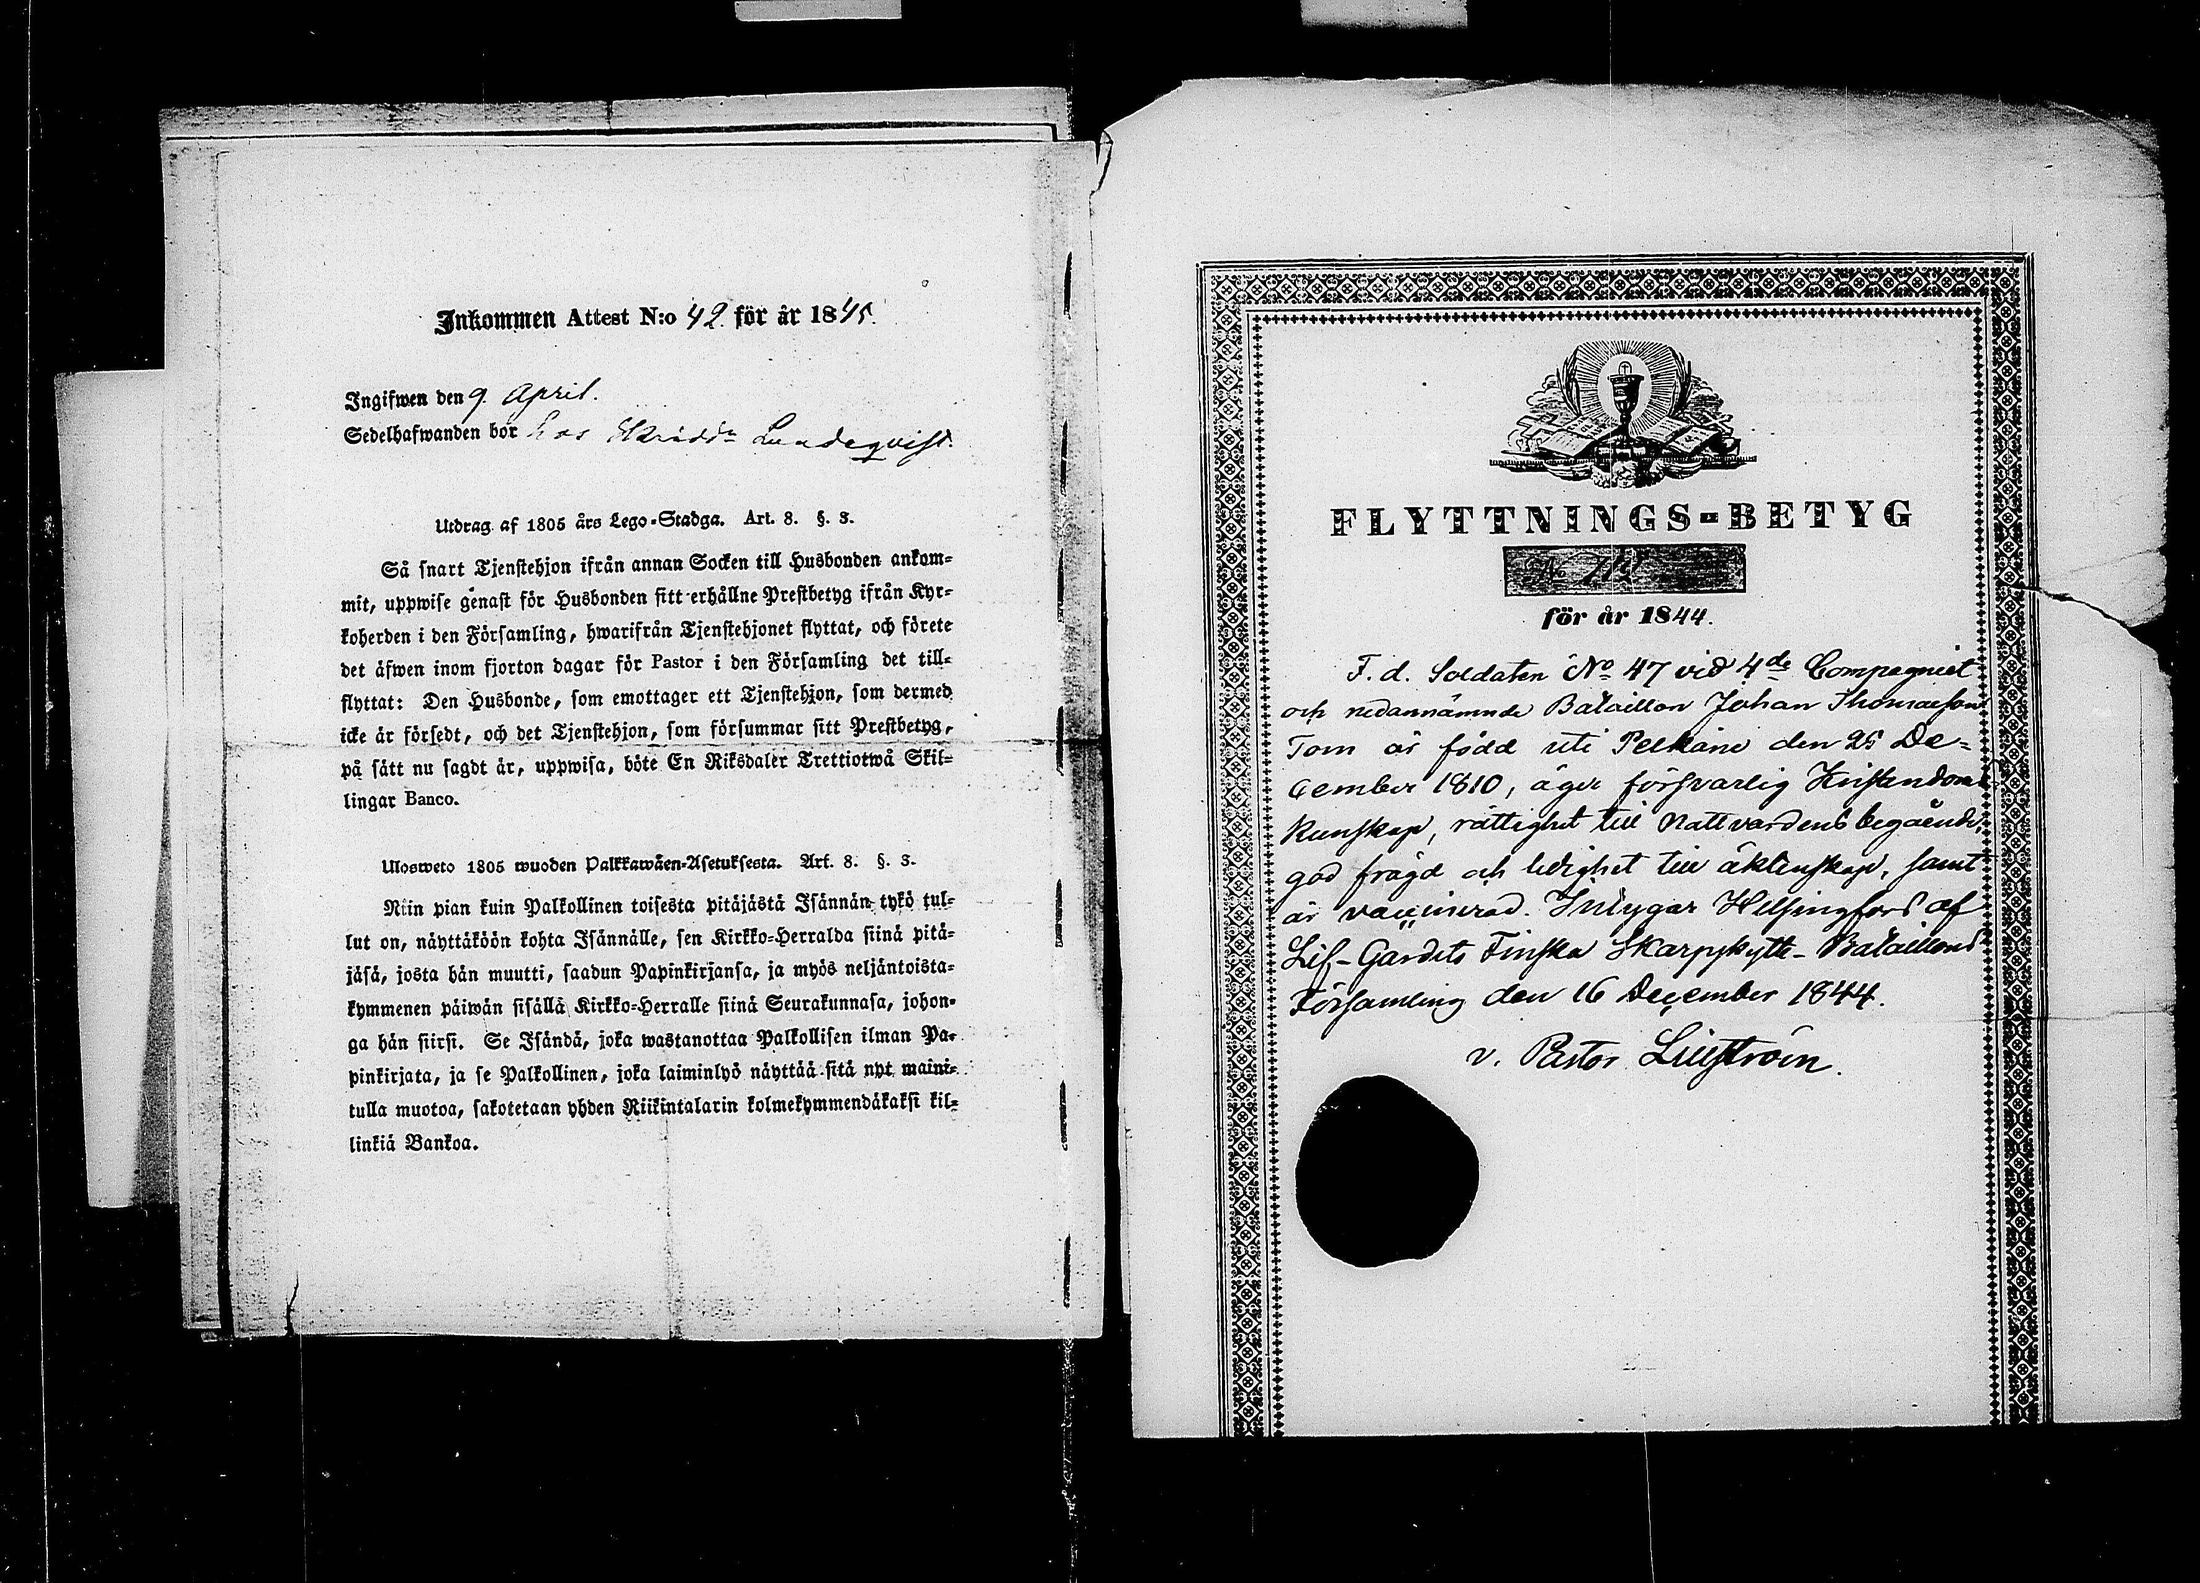 Inkommen Attest N:o 42. för år 1845.
Ingifwen den 9. April.
Sedelhafwanden bor hos Skrädd:n Lundeqvist.
Utdrag af 1805 års Lego-Stadga. Art. 8. §. 3.
Så snart Tjenstehjon ifrån annan Socken till Husbonden ankom-
mit, uppwise genast för Husbonden sitt erhållne Prestbetyg ifrån Kyr-
koherden i den Församling, hwarifrån Tjenstehjonet flyttat, och förete
det äfwen inom fjorton dagar för Pastor i den Församling det till-
flyttat: Den Husbonde, som emottager ett Tjenstehjon, som dermed
icke är försedt, och det Tjenstehjon, som försummar sitt Prestbetyg,
på sätt nu sagdt är, uppwisa, böte En Riksdaler Trettiotwå Skil-
lingar Banco.
Ulosweto 1805 wuoden Palkkawäen-Asetuksesta. Art. 8. §. 3.
Niin pian kuin Palkollinen toisesta pitäjästä Isännän tykö tul-
lut on, näyttäköön kohta Isännälle, sen Kirkko-Herralda siinä pitä-
jäsä, josta hän muutti, saadun Papinkirjansa, ja myös neljäntoista-
kymmenen päiwän sisällä Kirkko-Herralle siinä Seurakunnasa, johon-
ga hän siirsi. Se Isändä, joka wastanottaa Palkollisen ilman Pa-
pinkirjata, ja se Palkollinen, joka laiminlyö näyttää sitä nyt maini-
tulla muotoa, sakotetaan yhden Riikintalarin kolmekymmendäkaksi kil-
linkiä Bankoa.
FLYTTNINGS-BETYG
No
för år 1844.
F. d. Soldaten No 47 vid 4de Compagniet
och nedannämnde Bataillon Johan Thomasson
Tom är född uti Pelkäne den 25 De-
cember 1810, äger försvarlig Kristendoms
kunskap, rättighet till Nattvardens begående,
god frägd och ledighet till äktenskap, samt
är vaccinerad. Intygar Helsingfors af
Lif-Gardets Finska Skarpskytte-Bataillons
Församling den 16 December 1844.
v. Pastor